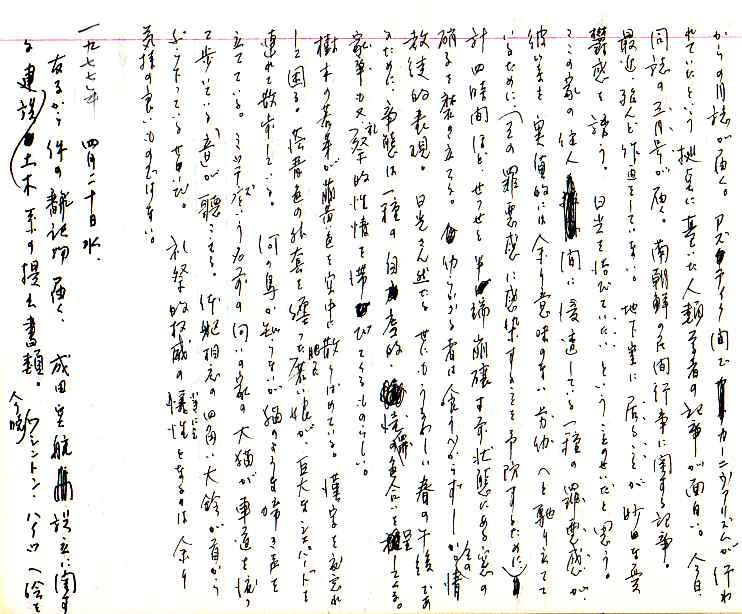 からの月誌が届く。アズティク間でカーニバリズムが行わ
れていたという拠点に基いた人類学者の記事が面白い。今日
同誌の三月号が届く。南朝鮮の民間行事に関する記事。
最近殆んど作画をしていない。地下室に居ることが妙に憂
鬱感を誘う。日光を浴びていたいということのせいだと思う。
ここの家の住人間に浸透している一種の罪悪感が
彼い等を実値的には余り意味のない労働へと馳り立てて
いるために、(その罪悪感に感染することを予防するために)
計四時間ほど、せっせと半端崩壊す前状態にある窓の
硝子を磨き立てる。働かざる者は喰うべからず—かの清
教徒的表現。日光さん然たる世にもうるわしい春の午後であ
るために、事態は一種の自虐的情操の色合いを呈してくる。
家事も又祭礼的性情を滞びてくるものらしい。
樹木の若芽が萌黄色を空中に散りばめている。漢字を忘れ
して困る。落着色の外套を纏った肥えた若い娘が巨大なシェパードを
連れて散歩している。何の鳥か知らないが猫のような啼き声を
立てている。ミッテンズという名前の向いの家の大猫が車道を横っ
て歩いている音が聴こえる。体躯相応の四角い大鈴が首から
ぶら下っているせいだ。礼祭的権威の犠牲となるのは余り
気持の良いものではない。
一九七七年 四月二十日 水、
友るから件の雑記物届く、成田空航設立に関す
る建設土木系の提出書類。今晩ワシントン・ハイツへ